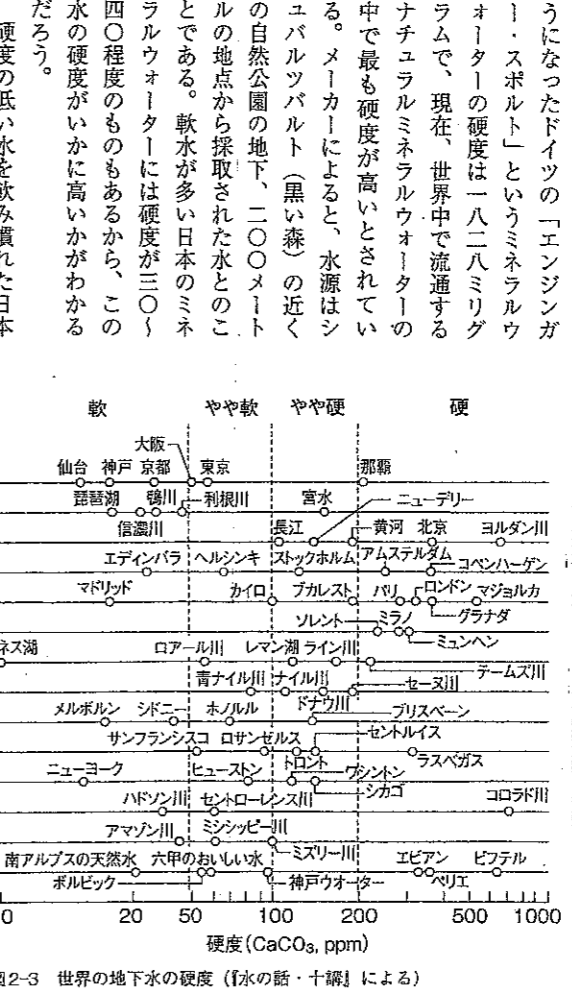 うになったドイツの「エンジンガ
ー・スポルト」というミネラルウ
ォーターの硬度は一八二八ミリグ
ラムで、現在、世界中で流通する
ナチュラルミネラルウォーターの
中で最も硬度が高いとされてい
る。メーカーによると、水源はシ
ュバルツバルト（黒い森）の近く
の自然公園の地下、二〇〇メート
ルの地点から採取された水とのこ
とである。軟水が多い日本のミネ
ラルウォーターには硬度が三〇〜
四〇程度のものもあるから、この
水の硬度がいかに高いかがわかる
だろう。
硬度の低い水を飲み慣れた日本
軟 やや軟 やや硬 硬
大阪
仙台 神戸 京都 東京 那覇
琵琶湖 鴨川 利根川 宮水 ニューデリー
信濃川 長江 黄河 北京 ヨルダン川
エディンバラ ヘルシンキ ストックホルム アムステルダム コペンハーゲン
マドリッド カイロ ブカレスト パリ ロンドン マジョルカ
ソレント ミラノ グラナダ
ミュンヘン
ネス湖 ロアール川 レマン湖 ライン川 テームズ川
青ナイル川 ナイル川 セーヌ川
メルボルン シドニー ホノルル ドナウ川 ブリスベーン
サンフランシスコ ロサンゼルス セントルイス
ラスベガス
ニューヨーク ヒューストン トロント ワシントン
シカゴ
ハドソン川 セントローレンス川 コロラド川
アマゾン川 ミシシッピー川
ミズリー川
南アルプスの天然水 六甲のおいしい水 エビアン ビフテル
ボルビック 神戸ウオーター ペリエ
0 20 50 100 200 500 1000
硬度(CaCO₃, ppm)
図2-3 世界の地下水の硬度（『水の話・十講』による）